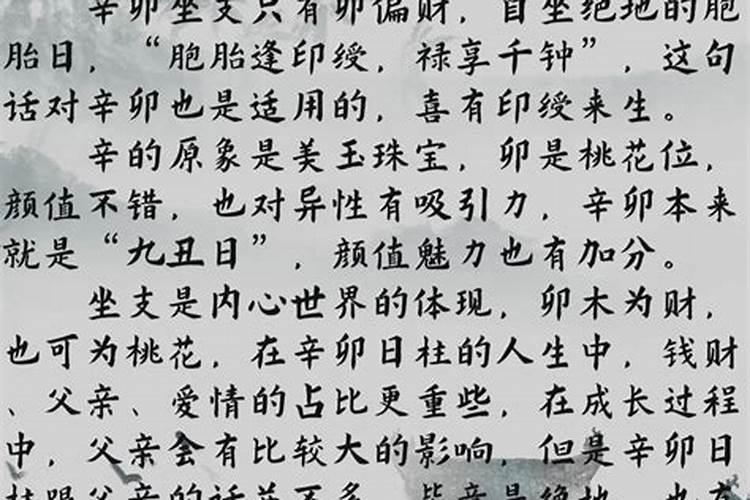 辛卯坐支只有卯偏财，自坐绝地的胞
胎日，“胞胎逢印绶，禄享千钟”，这句
话对辛卯也是适用的，喜有印绶来生。
辛的原象是美玉珠宝，卯是桃花位，
颜值不错，也对异性有吸引力，辛卯本来
就是“九丑日”，颜值魅力也有加分。
坐支是内心世界的体现，卯木为财，
也可为桃花，在辛卯日柱的人生中，钱财
、父亲、爱情的占比更重些，在成长过程
中，父亲会有比较大的影响，但是辛卯日
柱跟父亲的话并不多，毕竟是绝地，也有